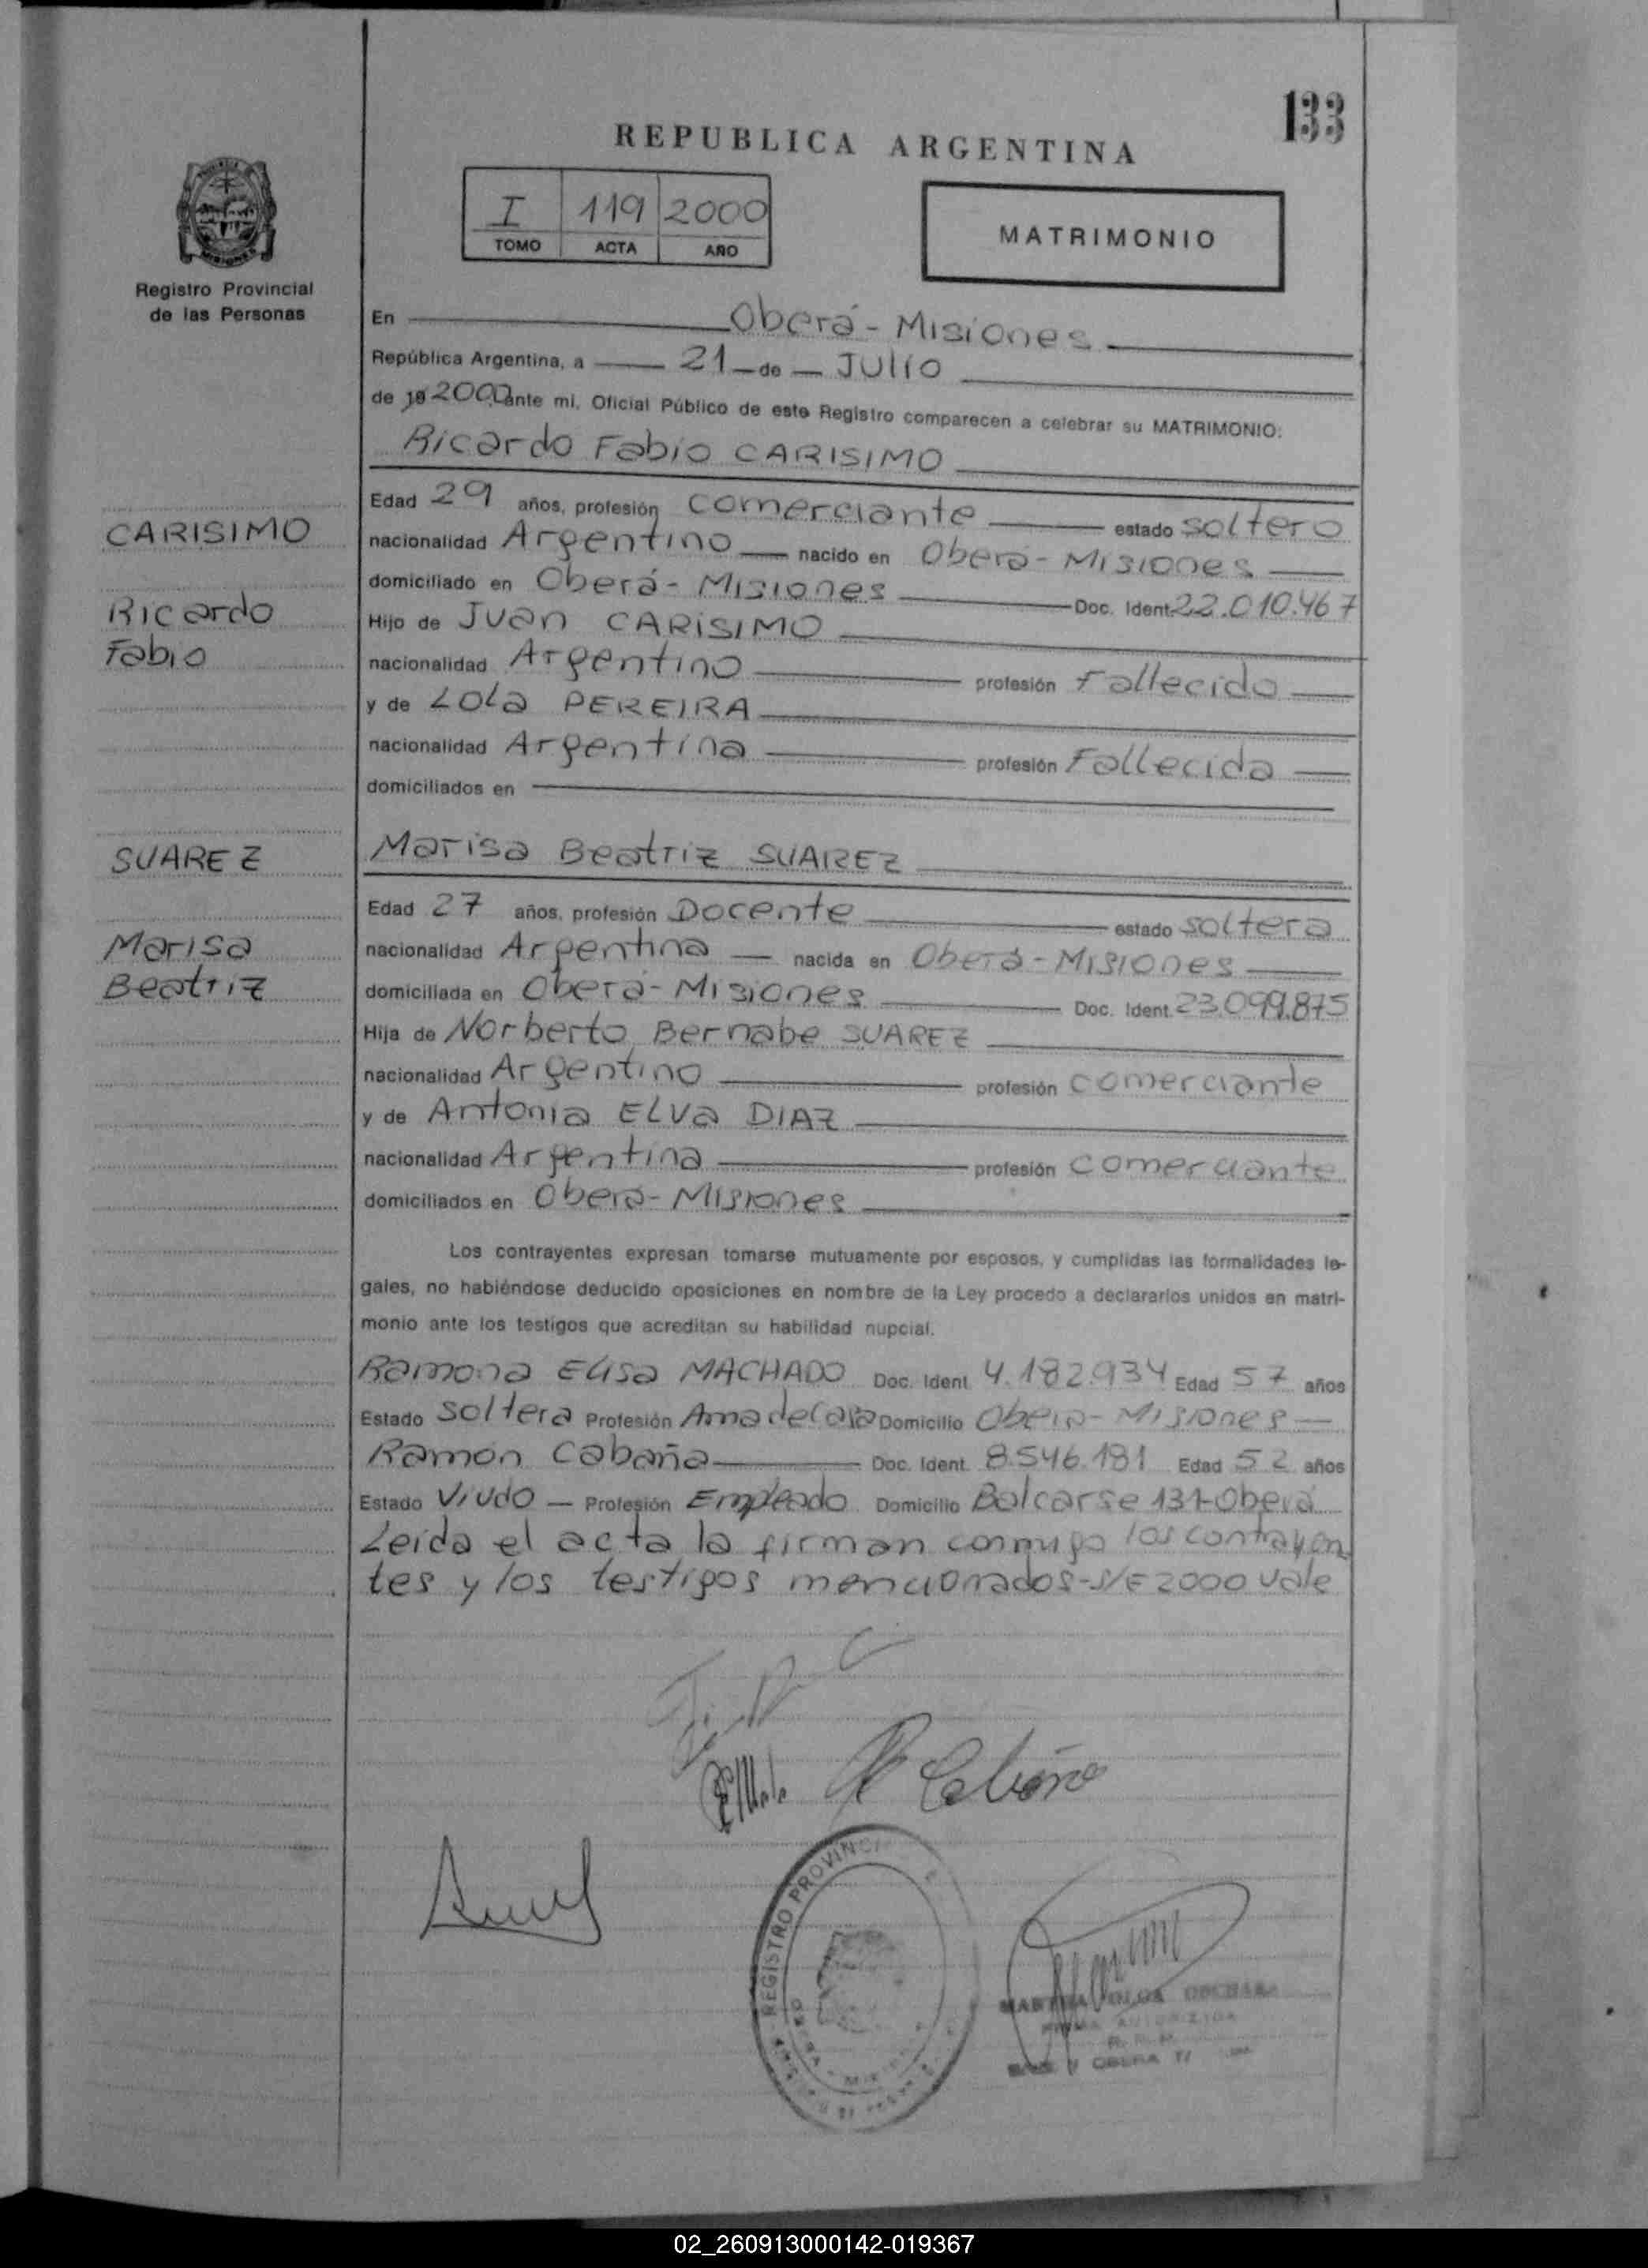 133
REPUBLICA ARGENTINA
I 119 2000
TOMO ACTA AÑO
MATRIMONIO
Registro Provincial
de las Personas
En Oberá - Misiones
República Argentina, a 21 de JULIO
de 19 2000 ante mi, Oficial Público de este Registro comparecen a celebrar su MATRIMONIO:
Ricardo Fabio CARISIMO
Edad 29 años, profesión comerciante estado soltero
CARISIMO
nacionalidad Argentino nacido en Oberá - Misiones
domiciliado en Oberá - Misiones Doc. Ident. 22.010.467
Ricardo
Hijo de Juan CARISIMO
Fabio
nacionalidad Argentino profesión Fallecido
y de Lola PEREIRA
nacionalidad Argentina profesión Fallecida
domiciliados en
SUAREZ
Marisa Beatriz SUAREZ
Edad 27 años, profesión Docente estado soltera
Marisa
nacionalidad Argentina nacida en Oberá - Misiones
Beatriz
domiciliada en Oberá - Misiones Doc. Ident. 23.099.875
Hija de Norberto Bernabe SUAREZ
nacionalidad Argentino profesión comerciante
y de Antonia ELVA DIAZ
nacionalidad Argentina profesión comerciante
domiciliados en Oberá - Misiones
Los contrayentes expresan tomarse mutuamente por esposos, y cumplidas las formalidades le-
gales, no habiéndose deducido oposiciones en nombre de la Ley procedo a declararlos unidos en matri-
monio ante los testigos que acreditan su habilidad nupcial.
Ramona Elisa MACHADO Doc. Ident. 4.182.934 Edad 57 años
Estado soltera Profesión Ama de Casa Domicilio Oberá - Misiones
Ramón Cabaña Doc. Ident. 8.546.181 Edad 52 años
Estado Viudo Profesión Empleado Domicilio Balcarse 131-Oberá
Leída el acta la firman conmigo los contrayen
tes y los testigos mencionados-S/E 2000 vale
R Cabaña
REGISTRO PROVINCI
OBERA
02_260913000142-019367